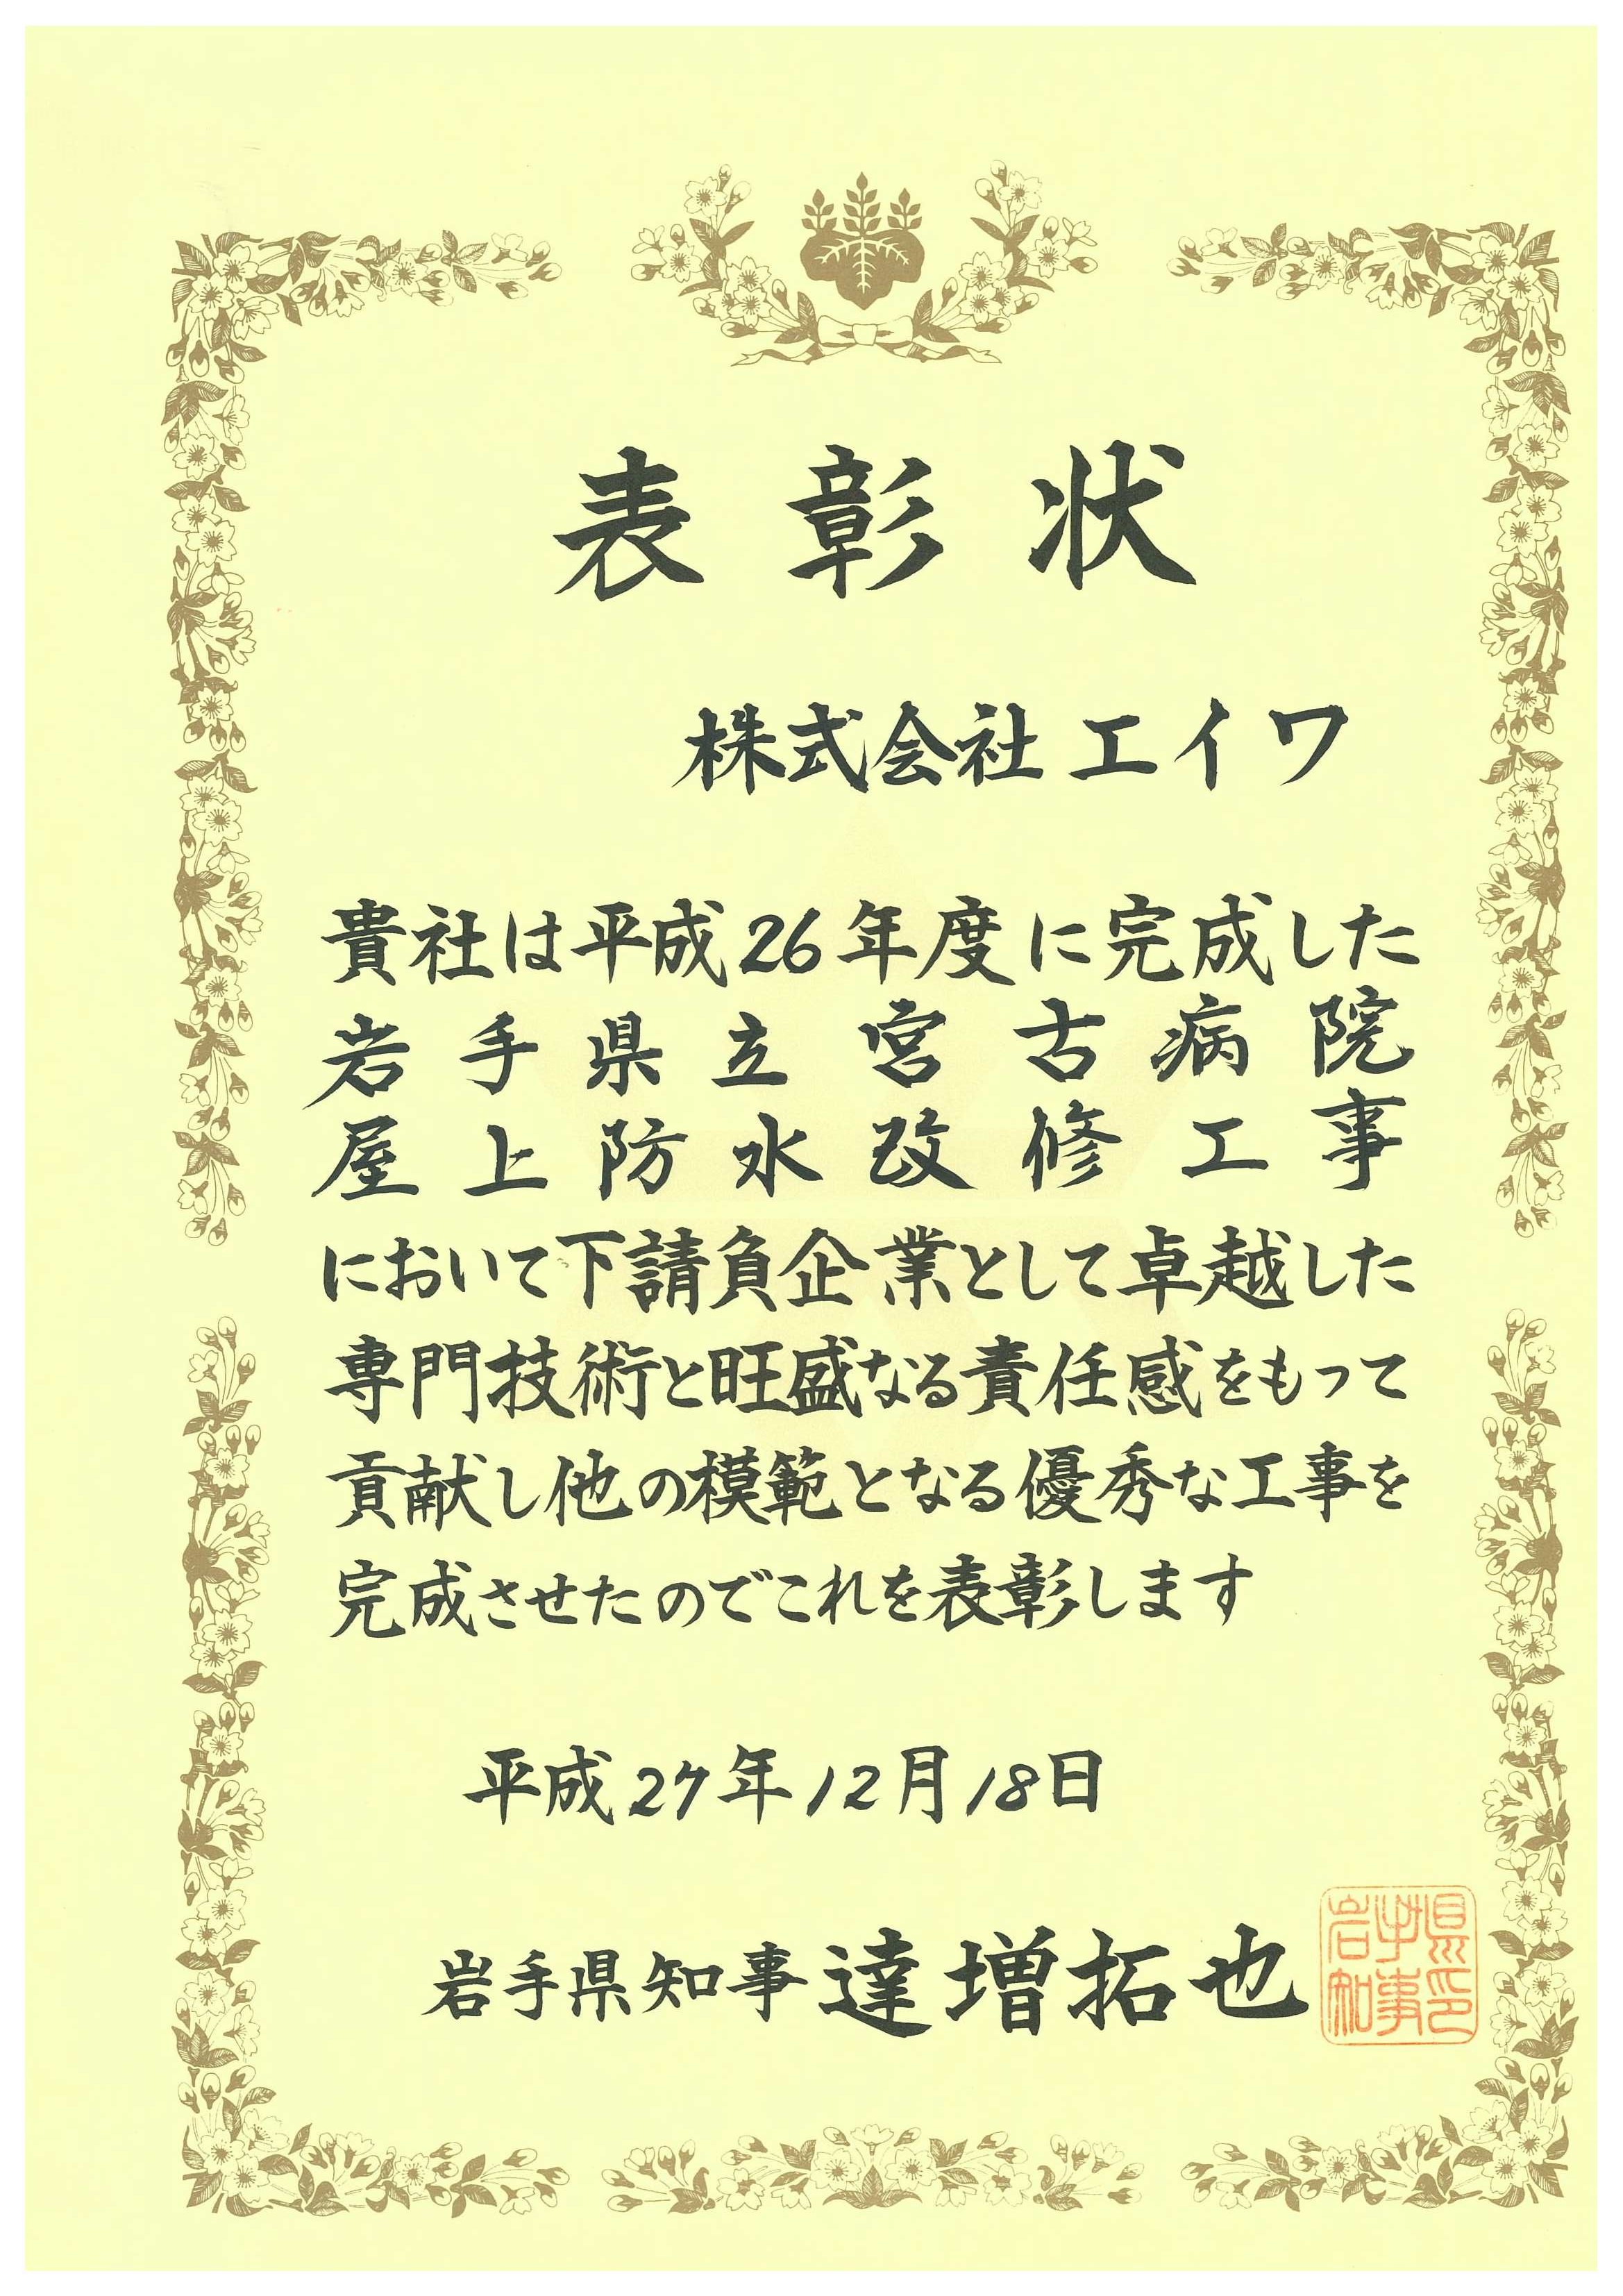 表彰状
株式会社エイワ
貴社は平成26年度に完成した
岩手県立宮古病院
屋上防水改修工事
において下請負企業として卓越した
専門技術と旺盛なる責任感をもって
貢献し他の模範となる優秀な工事を
完成させたのでこれを表彰します
平成27年12月18日
岩手県知事 達増拓也
岩手県知事印